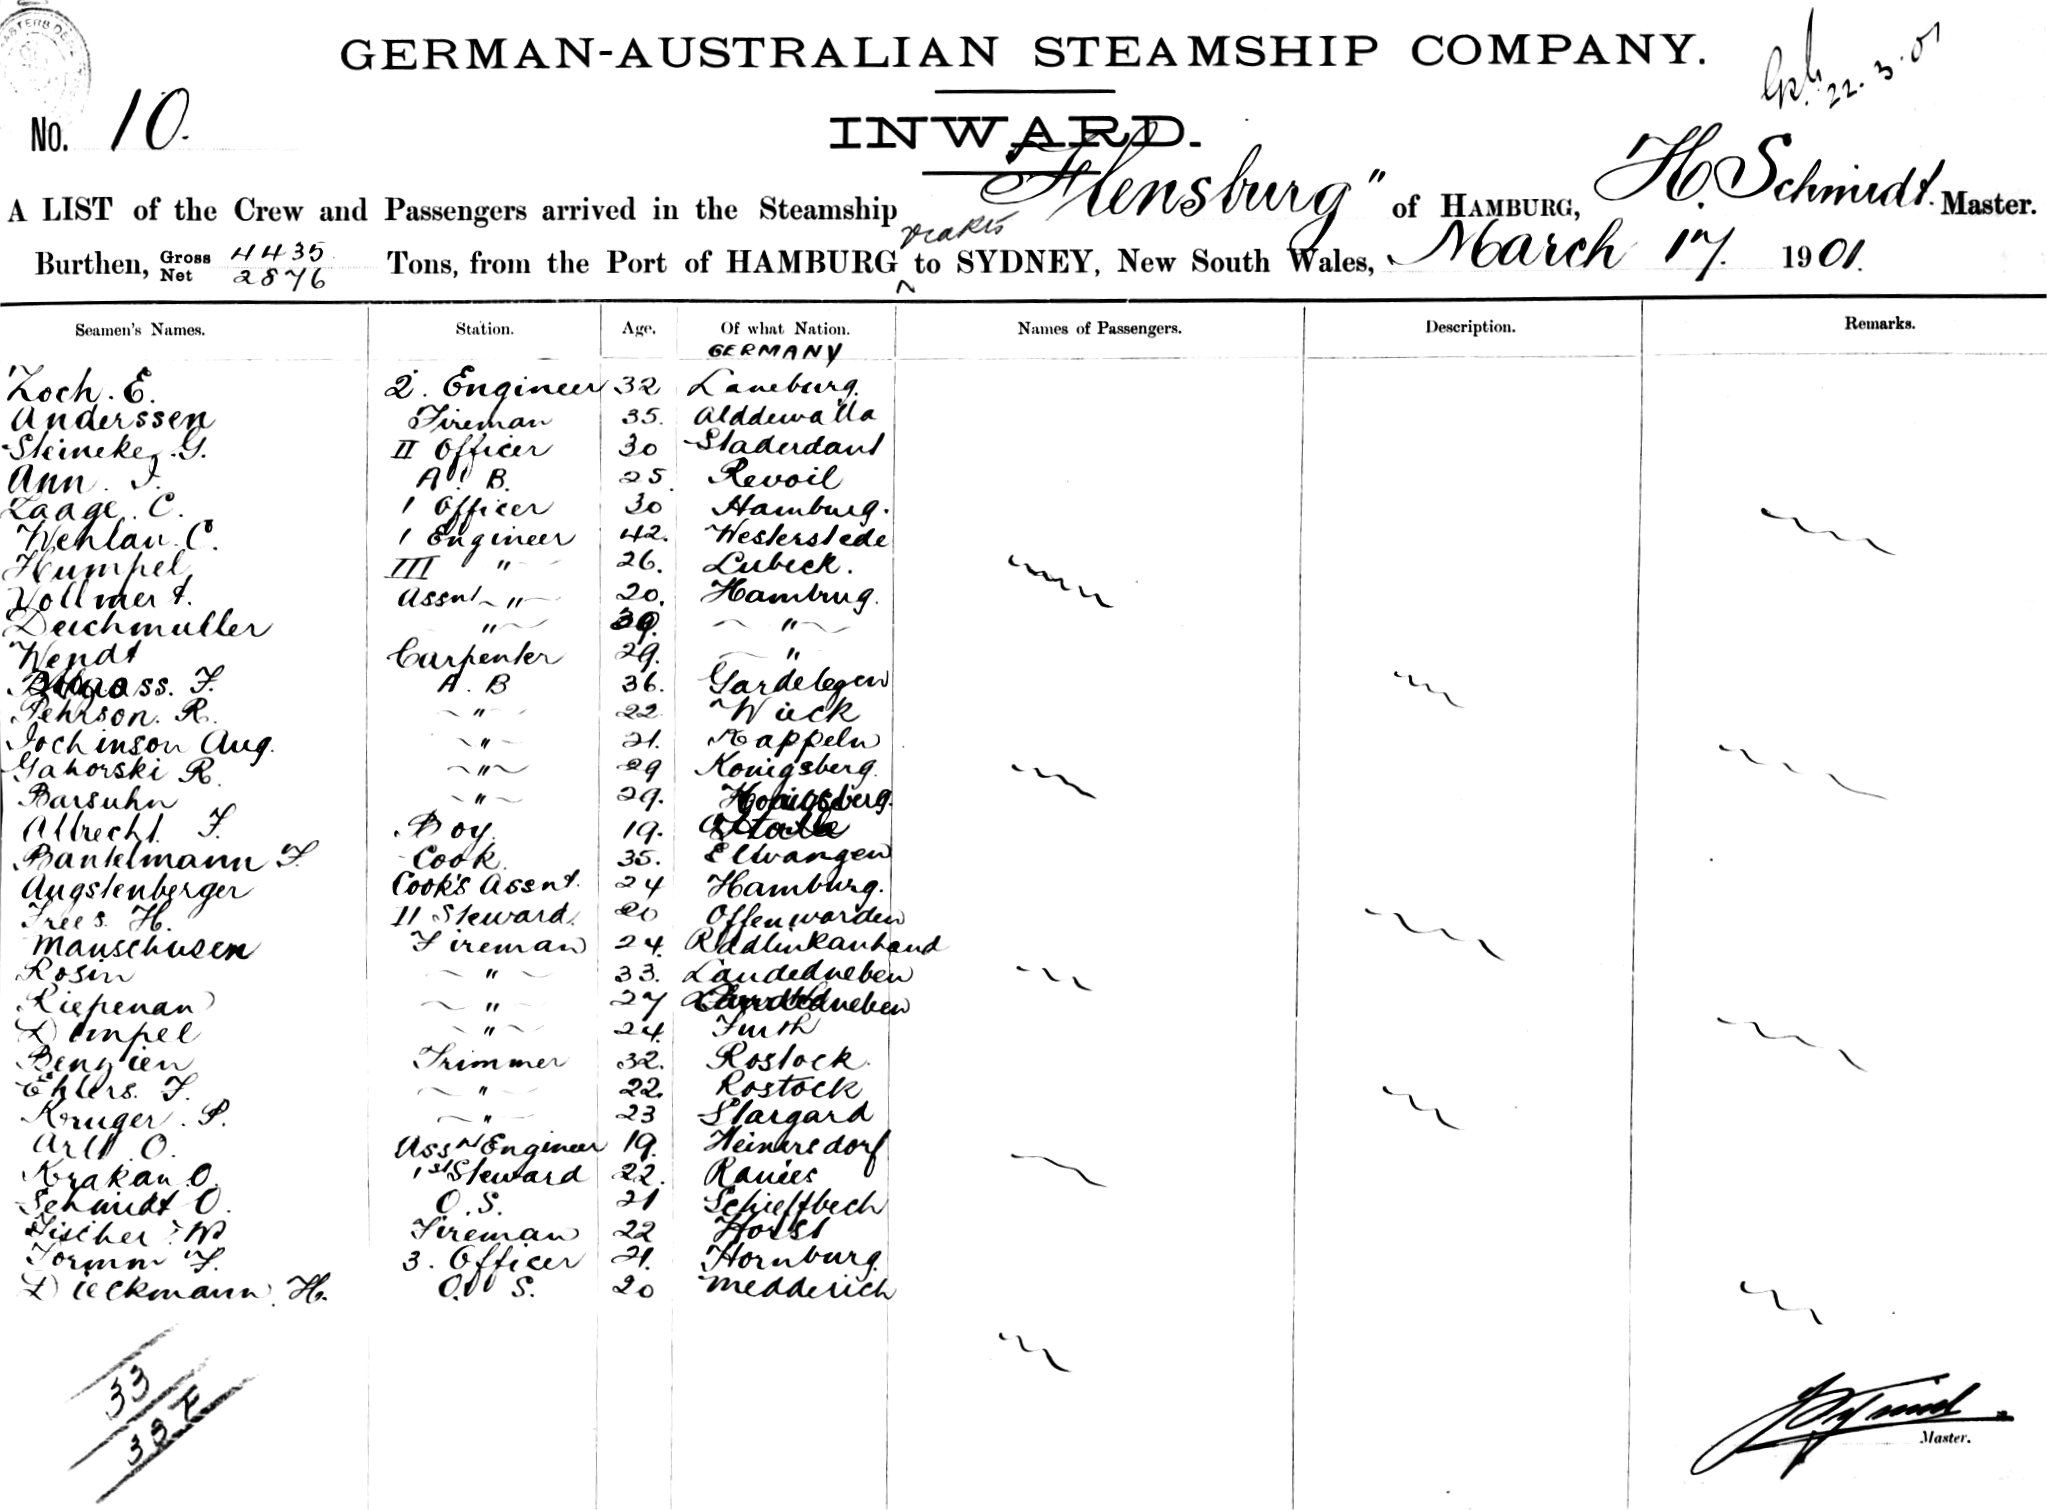 GERMAN-AUSTRALIAN STEAMSHIP COMPANY.
22.3.01
No. 10.
INWARD.
A LIST of the Crew and Passengers arrived in the Steamship "Flensburg" of HAMBURG, H. Schmidt. Master.
Burthen, Gross 4435 Net 2876 Tons, from the Port of HAMBURG to SYDNEY, New South Wales, March 17. 1901.
Seamen's Names. Station. Age. Of what Nation. Names of Passengers. Description. Remarks.
GERMANY
Zoch. E. 2. Engineer 32 Laneburg.
Anderssen Fireman 35. Alddewalla
Steineke, G. II Officer 30 Staderdant
Ann. J. A. B. 25. Revoil
Zaage. C. 1 Officer 30 Hamburg.
Wehlau. C. 1 Engineer 42. Westerstede
Humpel III " 26. Lubeck.
Vollmert. Assnt " 20. Hambrug.
Deichmuller " "
Wendt Carpenter 29. "
F. A. B 36. Gardelegen
Pehrson. R. " 22 Wieck
Jochinson Aug. " 21. Kappeln
Gahorski R. " 29 Konigsberg.
Barsuhn " 29.
Albrecht. F. Boy. 19.
Bankelmann F. Cook. 35. Ellwangen
Augstenberger Cook's Assnt. 24 Hamburg.
Frees. H. II Steward. 20 Offenwarden
Manschusen Fireman 24.
Rosin " 33. Landedneben
Riepenan " 27
Dimpel " 24. Furth
Benzien Trimmer 32. Rostock.
Ehlers. F. " 22. Rostock
Kruger. P. " 23 Stargard
Arlt. O. Assnt Engineer 19. Heinersdorf
Krakan O. 1st Steward 22. Ranies
Schmidt O. O. S. 21 Schieffbech
Fischer. W Fireman 22 Horst
Tormm F. 3. Officer 21. Hornburg.
Dieckmann. H. O. S. 20 Medderich
33
33
Master.